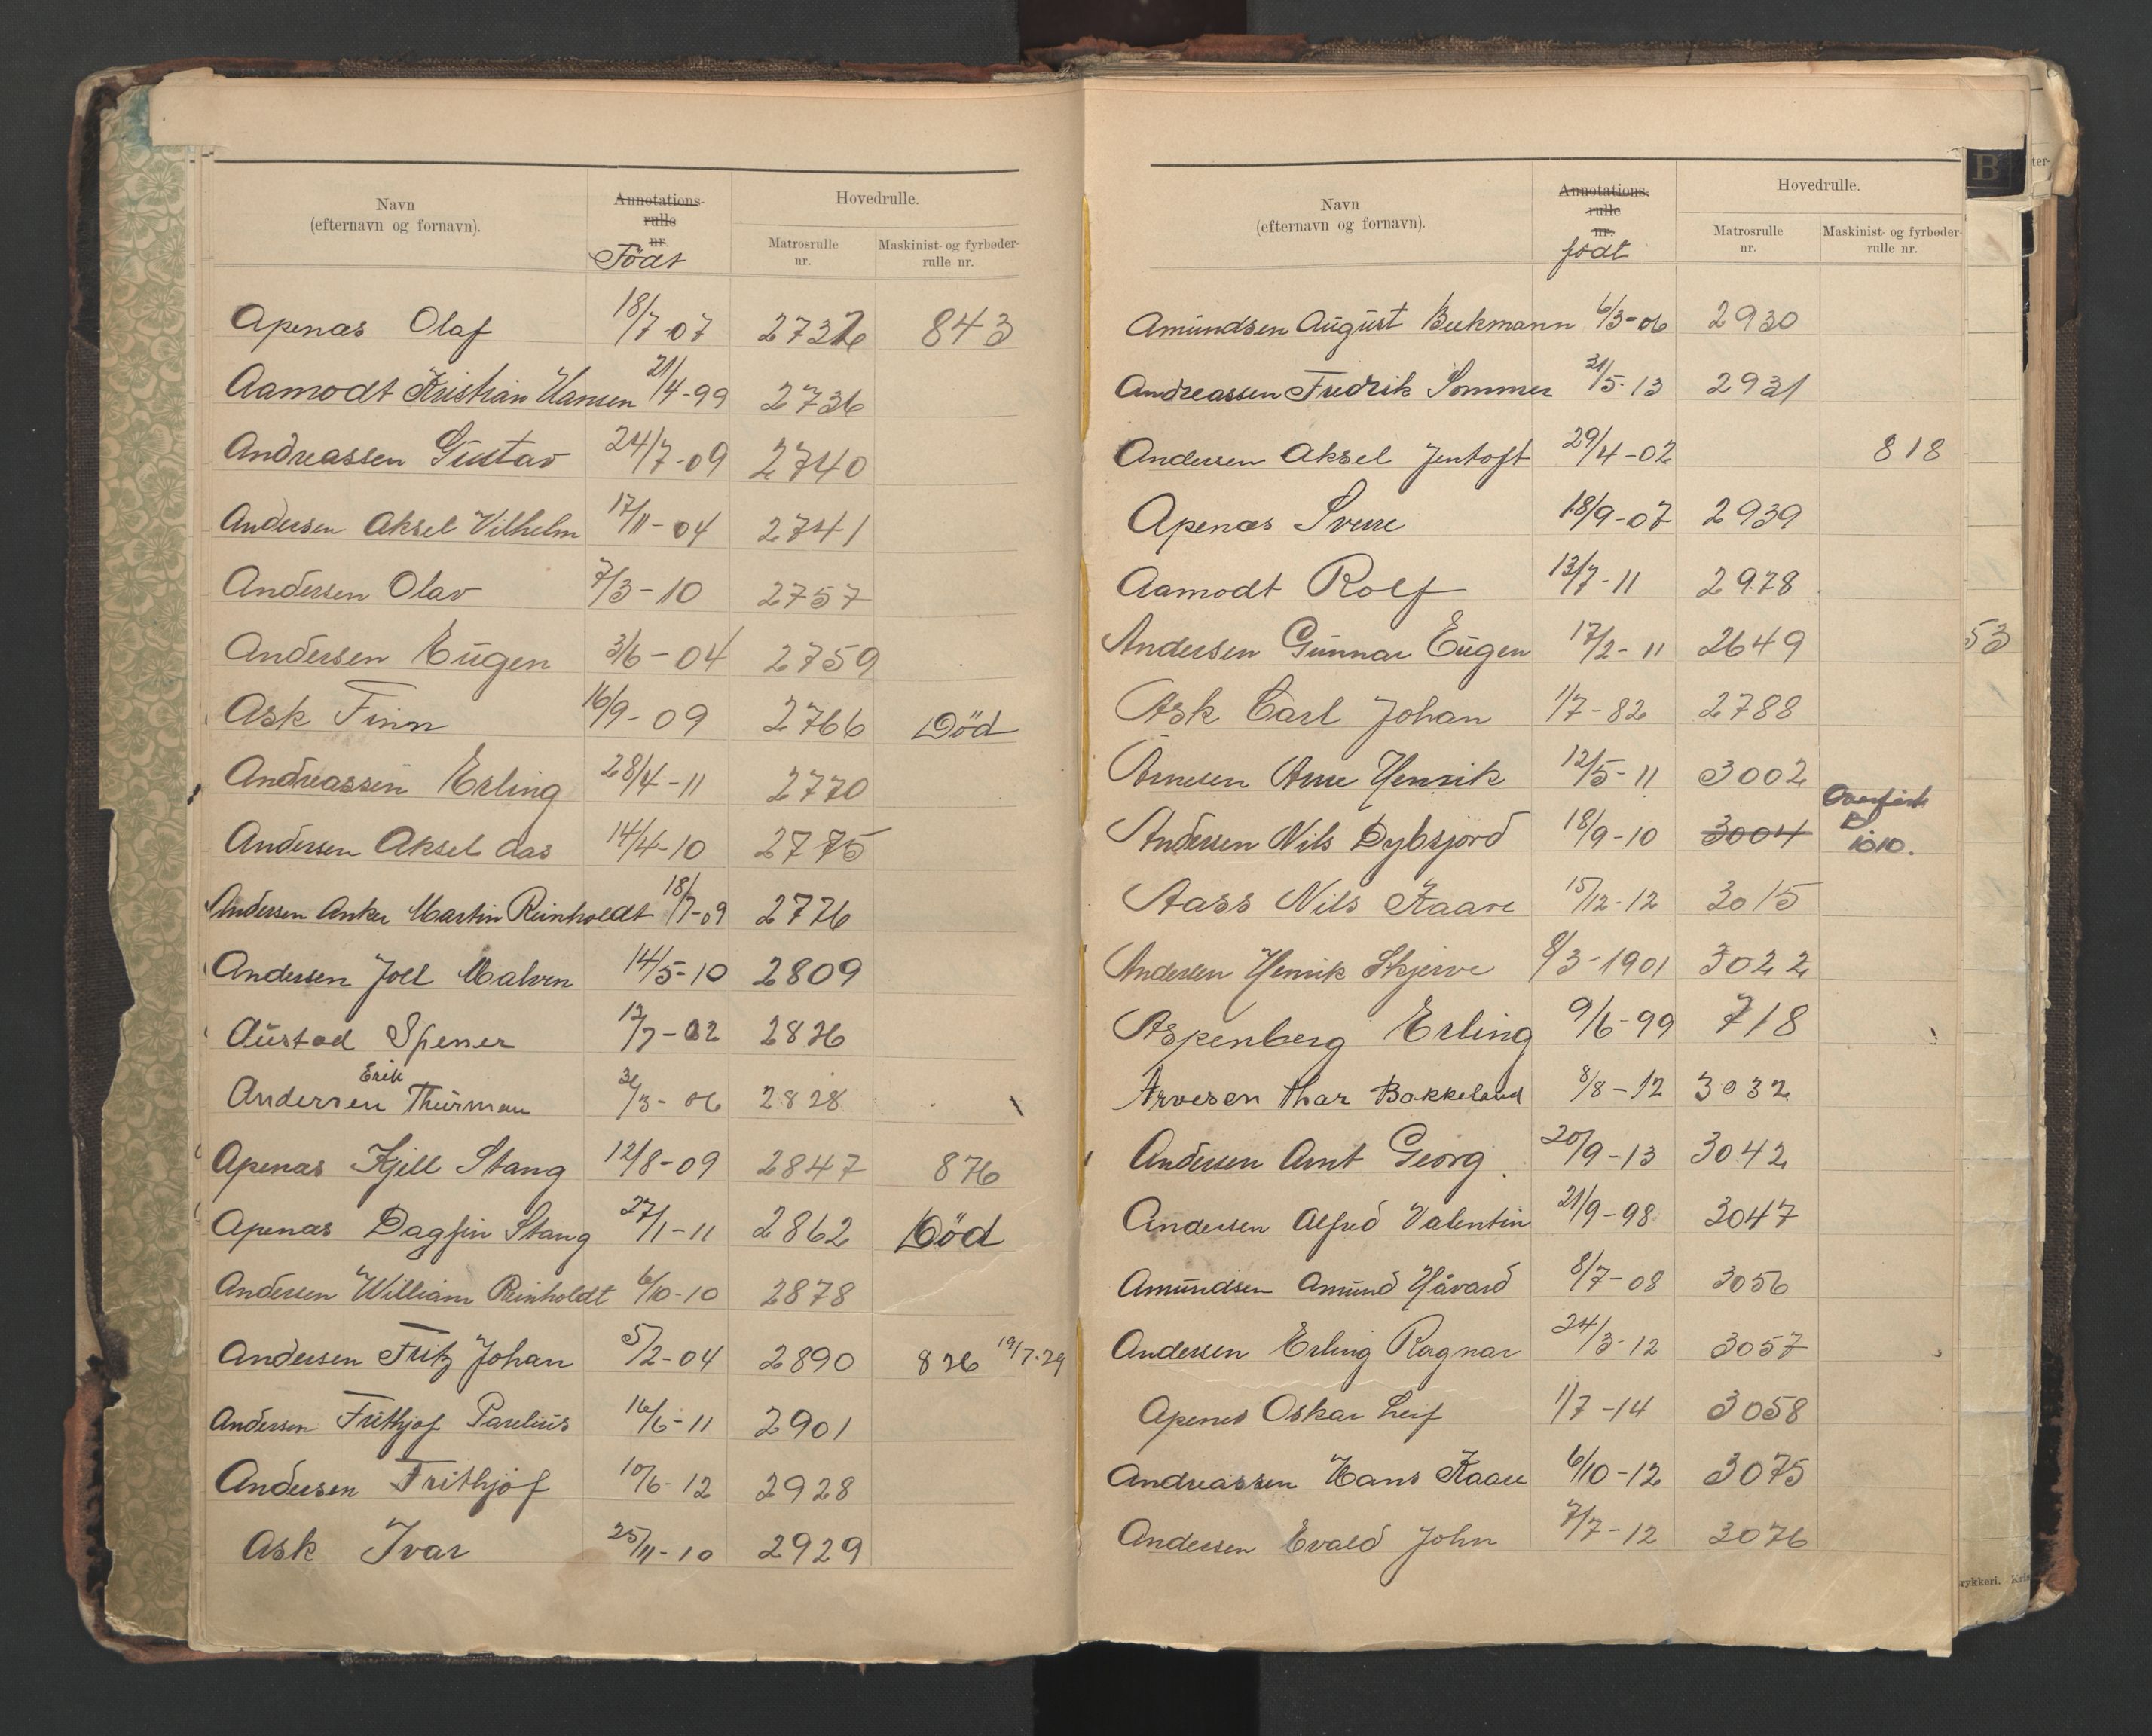 Navn
(efternavn og fornavn).
Annotations-
rulle
nr.
Födt
Hovedrulle.
Matrosrulle
nr.
Maskinist- og fyrbøder-
rulle nr.
Apenæs Olaf 18/7-07 2732 843
Aamodt Kristian Hansen 21/4-99 2736
Andreassen Gustav 24/7-09 2740
Andersen Aksel Vilhelm 17/11-04 2741
Andersen Olav 7/3-10 2757
Andersen Eugen 3/6-04 2759
Ask Finn 16/9-09 2766 Död
Andreassen Erling 28/4-11 2770
Andersen Aksel Aas 14/4-10 2775
Andersen Anker Martin Reinholdt 18/7-09 2776
Andersen Joel Malvin 14/5-10 2809
Austad Spener 13/7-02 2826
Erik
Andersen Thurman /3-06 2828
Apenæs Kjell Stang 12/8-09 2847 876
Apenæs Dagfin Stang 27/1-11 2862 Död
Andersen William Reinholdt 6/10-10 2878
Andersen Fritz Johan 5/2-04 2890 826 19/7-29
Andersen Frithjof Parelius 16/6-11 2901
Andersen Frithjof 10/6-12 2928
Ask Ivar 25/11-10 2929
Navn
(efternavn og fornavn).
Annotations-
rulle
nr.
födt
Hovedrulle.
Matrosrulle
nr.
Maskinist- og fyrbøder-
rulle nr.
Amundsen August Beekmann 6/3-06 2930
Andreassen Fredrik Sommer 21/5-13 2931
Andersen Aksel Jentoft 29/4-02 818
Apenæs Sverre 18/9-07 2939
Aamodt Rolf 13/7-11 2978
Andersen Gunnar Eugen 17/2-11 2649
Ask Carl Johan 1/7-82 2788
Arnesen Arne Henrik 12/5-11 3002
Andersen Nils Dybsjord 18/9-10 3004 Overført
1010.
Aass Nils Kaare 15/12-12 3015
Andersen Henrik Skjerve 8/3-1901 3022
Aspenberg Erling 9/6-99 718
Arvesen Thor Bakkeland 8/8-12 3032
Andersen Arnt Georg 20/9-13 3042
Andersen Alfred Valentin 21/9-98 3047
Amundsen Amund Håvard 8/7-08 3056
Andersen Erling Ragnar 24/3-12 3057
Apenes Oskar Leif 1/7-14 3058
Andreassen Hans Kaare 6/10-12 3075
Andersen Evald John 7/7-12 3076
B
ter-
53
rykkeri. Kris